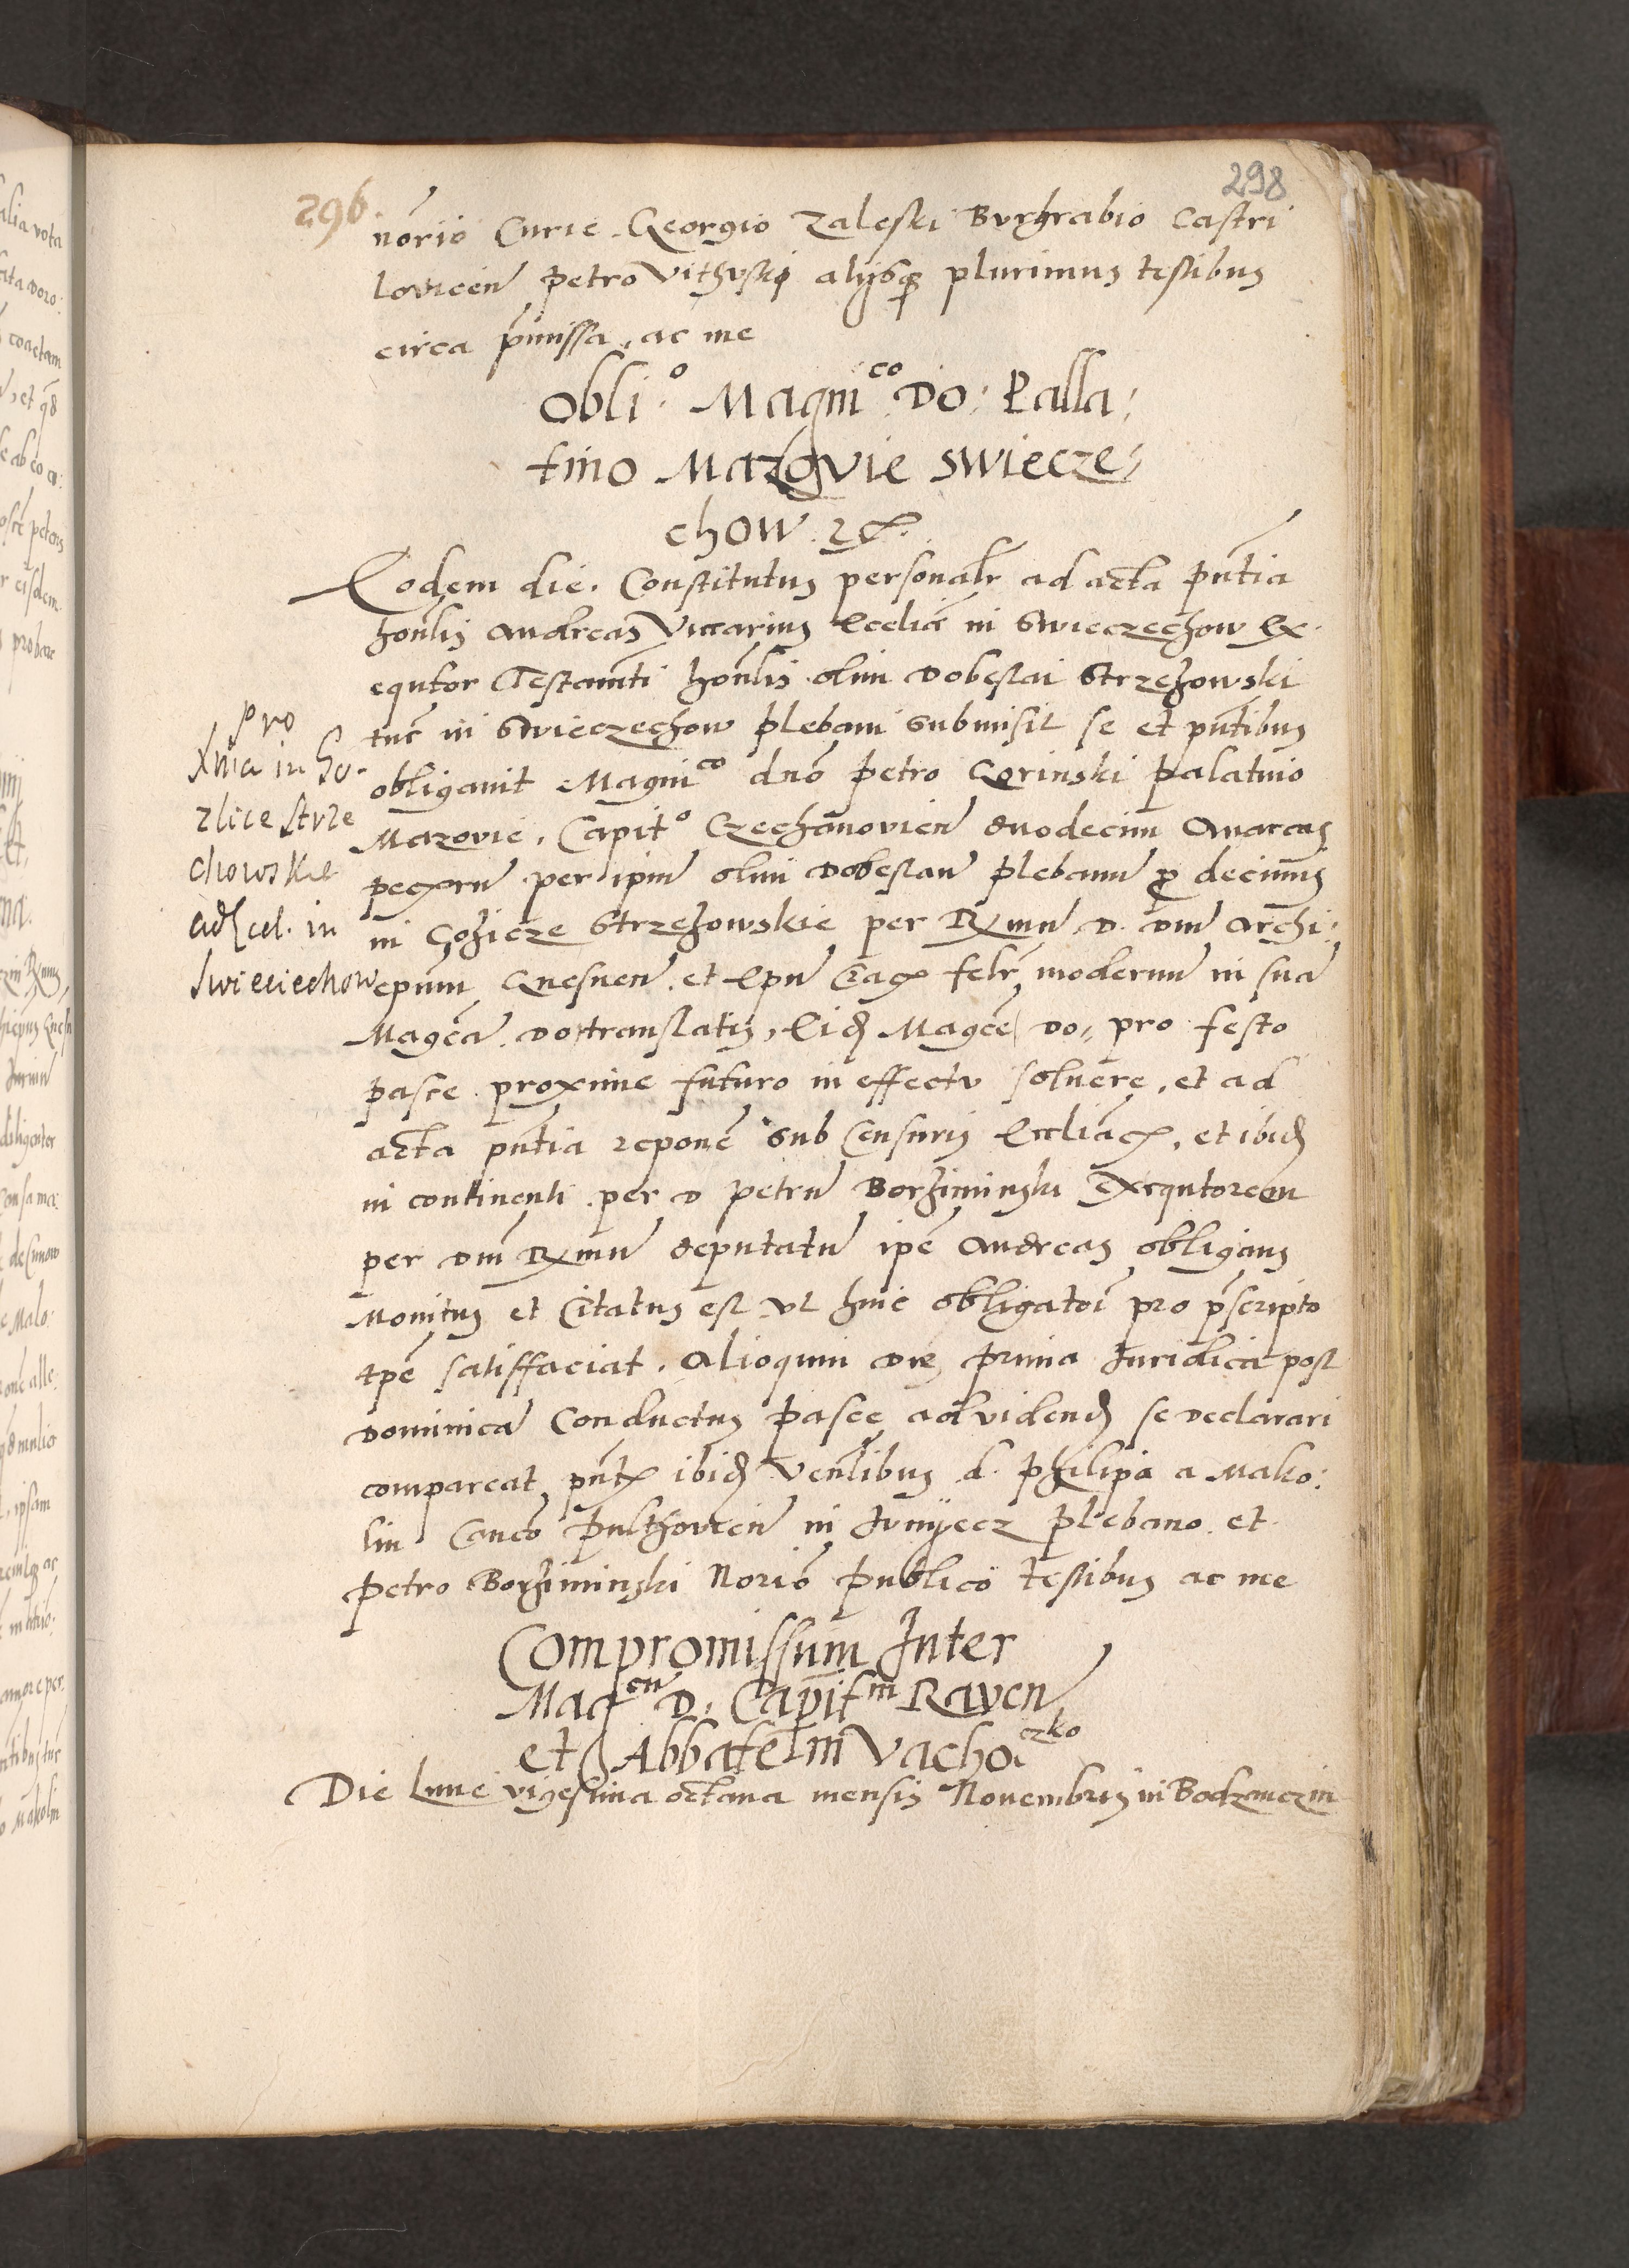 298
296
norio Curie. Georgio Zaleski Burgrabio Castri
Lovicen petro Vithvski alijsq plurimus testibus
circa pmissa, ac me
Obli.o Magni.co Do: Palla:
tino Mazovie Swiecze,
chow. 2c.
Eodem die. Constitutus personalr ad acta pntia
honlis Andreas Viccarius Ecclie in Swieczechow Ex.
equtor Testamti honlis olim Dobeslai Strzeżowski
tuc in Swieczechow plebani submisit se et pntibus
obligauit Magnico dno petro Gorinski palatino
Mazovie. Capito Czechanovien duodecim Marcas
pecxrn per ipm olim Dobeslau plebanu p decimis
in Gozicze Strzeżowskie per Rxmu D. dm Archi:
epum Gnesnen. et Epu Crac felr, modernu in sua
Magcia. Do translatis, Eid Magce Do, pro festo
pasce proxime futuro in effectu soluere, et ad
acta pntia repone sub Censuris Eccliac, et ibid
in continenti per D petru Borziminski Exequtorem
per dm Rxmu deputatu ipe Andreas obligans
Monitus et Citatus est vt huic obligatoi pro pscripto
tpe satisffaciat. Alioquin die prima Juridica post
dominica Conductus pasce ad vidend se declarari
compareat, pnt ibid Venlibus d. philipa a Mako:
lin Canco pulthovien in Junijecz plebano. et
petro Borziminski Norio publico testibus ac me
pro
Xma in Go.
zlice strze
chowskie
ad Eccl. in
Swieciechow
Compromissum Inter
Magcu D. Capitm Raven
et Abbatem Vachoczko
Die Lune vigesima octaua mensis Nouembris in Bodzanczin